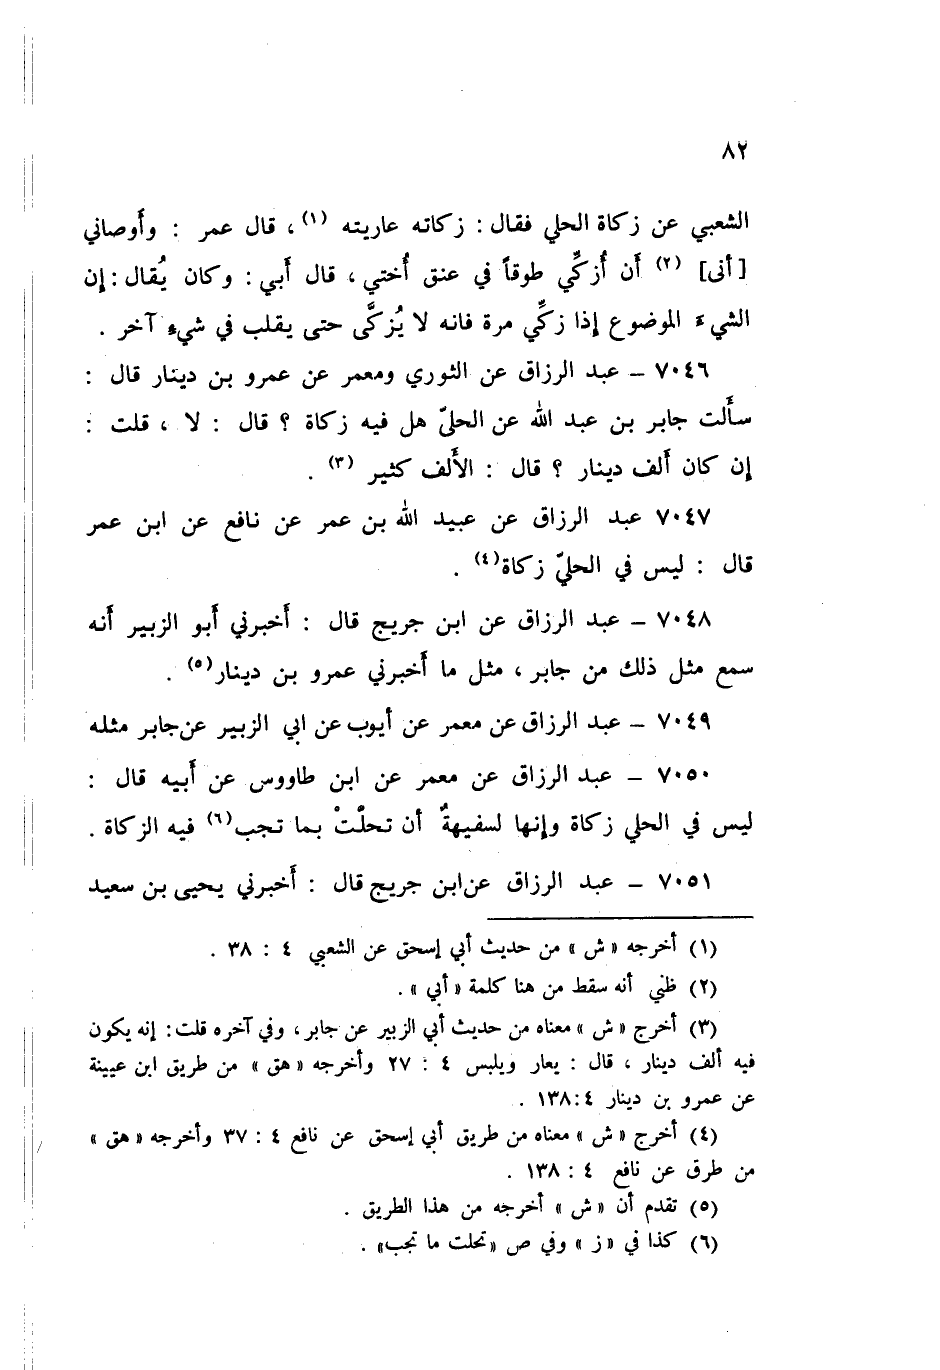 ٨٢
الشعبي عن زكاة الحلي فقال : زكاته عاريته (١) ، قال عمر : وأَوصاني
[أبى] (٢) أَن أُزكِّي طوقاً في عنق أُختي ، قال أَبي : وكان يُقال : إن
الشيءَ الموضوع إذا زكِّي مرة فانه لا يُزكَّى حتى يقلب في شيءٍ آخر .
٧٠٤٦ – عبد الرزاق عن الثوري ومعمر عن عمرو بن دينار قال :
سأَلت جابر بن عبد الله عن الحليّ هل فيه زكاة ؟ قال : لا ، قلت :
إن كان أَلف دينار ؟ قال : الأَلف كثير (٣) .
٧٠٤٧ عبد الرزاق عن عبيد الله بن عمر عن نافع عن ابن عمر
قال : ليس في الحليّ زكاة(٤) .
٧٠٤٨ – عبد الرزاق عن ابن جريج قال : أَخبرني أَبو الزبير أَنه
سمع مثل ذلك من جابر ، مثل ما أَخبرني عمرو بن دينار(٥) .
٧٠٤٩ – عبد الرزاق عن معمر عن أيوب عن ابي الزبير عن جابر مثله
٧٠٥٠ – عبد الرزاق عن معمر عن ابن طاووس عن أَبيه قال :
ليس في الحلي زكاة وإنها لسفيهةٌ أن تحلّتْ بما تجب(٦) فيه الزكاة .
٧٠٥١ – عبد الرزاق عن ابن جريج قال : أَخبرني يحيى بن سعيد
(١) أخرجه «ش» من حديث أبي إسحق عن الشعبي ٤ : ٣٨ .
(٢) ظني أنه سقط من هنا كلمة «أبي» .
(٣) أخرج «ش» معناه من حديث أبي الزبير عن جابر ، وفي آخره قلت : إنه يكون
فيه ألف دينار ، قال : يعار ويلبس ٤ : ٢٧ وأخرجه «هق» من طريق ابن عيينة
عن عمرو بن دينار ٤ : ١٣٨ .
(٤) أخرج «ش» معناه من طريق أبي إسحق عن نافع ٤ : ٣٧ وأخرجه «هق»
من طرق عن نافع ٤ : ١٣٨ .
(٥) تقدم أن «ش» أخرجه من هذا الطريق .
(٦) كذا في «ز» وفي ص «تحلت ما تجب» .